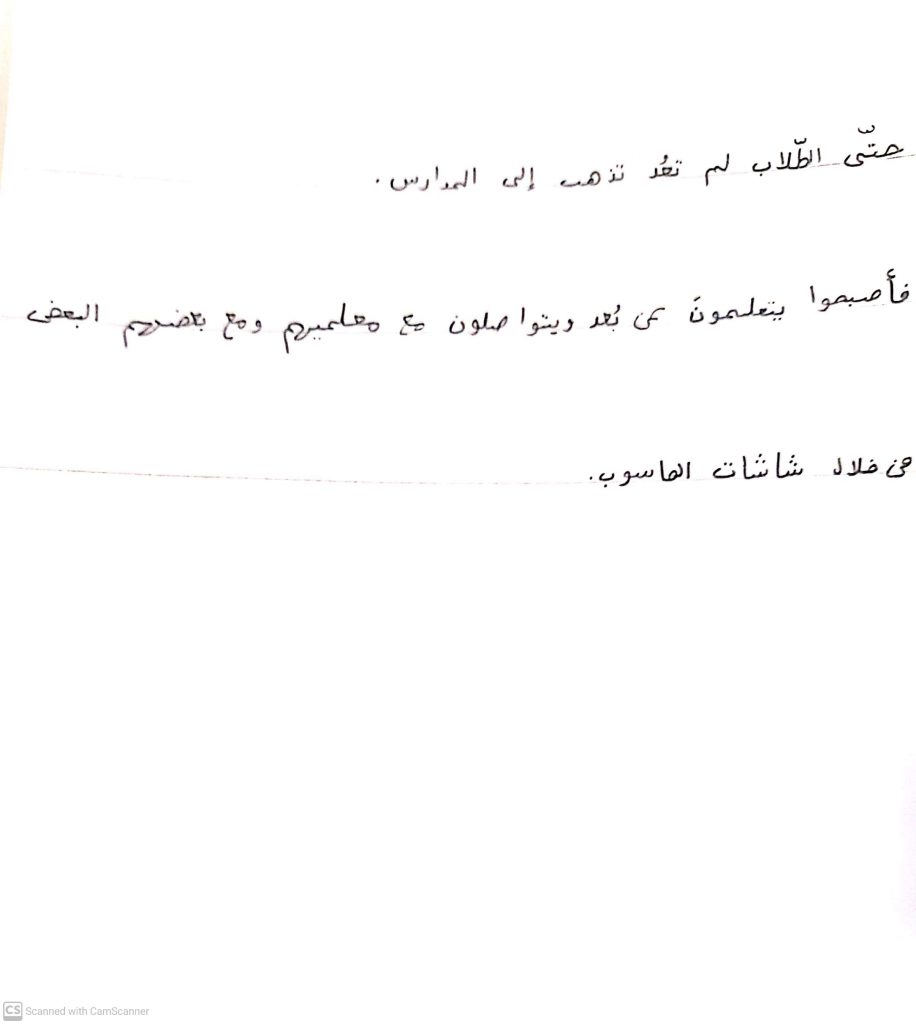 حتّى الطّلاب لم تعُد تذهب إلى المدارس.
فأصبحوا يتعلمونَ عن بُعد ويتواصلون مع معلميهم ومع بعضهم البعض
من خلال شاشات الحاسوب.
CS Scanned with CamScanner